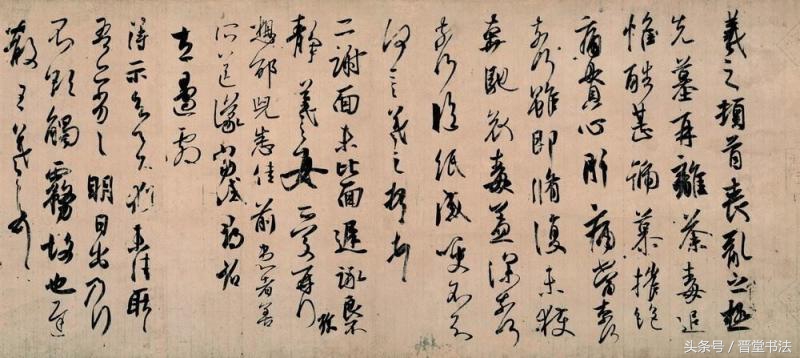 羲之頓首喪亂之極
先墓再離荼毒追
惟酷甚號慕摧絕
痛貫心肝痛當奈何
奈何雖即脩復未獲
奔馳哀毒益深奈何
奈何臨紙感哽不知
何言羲之頓首頓首
二謝面未比面遲詠良不
靜羲之女愛再拜
珎
想邵兒悉佳前患者善
所送議當試尋省
左邊劇
得示知足下猶未佳耿耿
吾亦劣劣明日出乃行
不欲觸霧故也遲
散王羲之頓首
头条号 / 晋堂书法